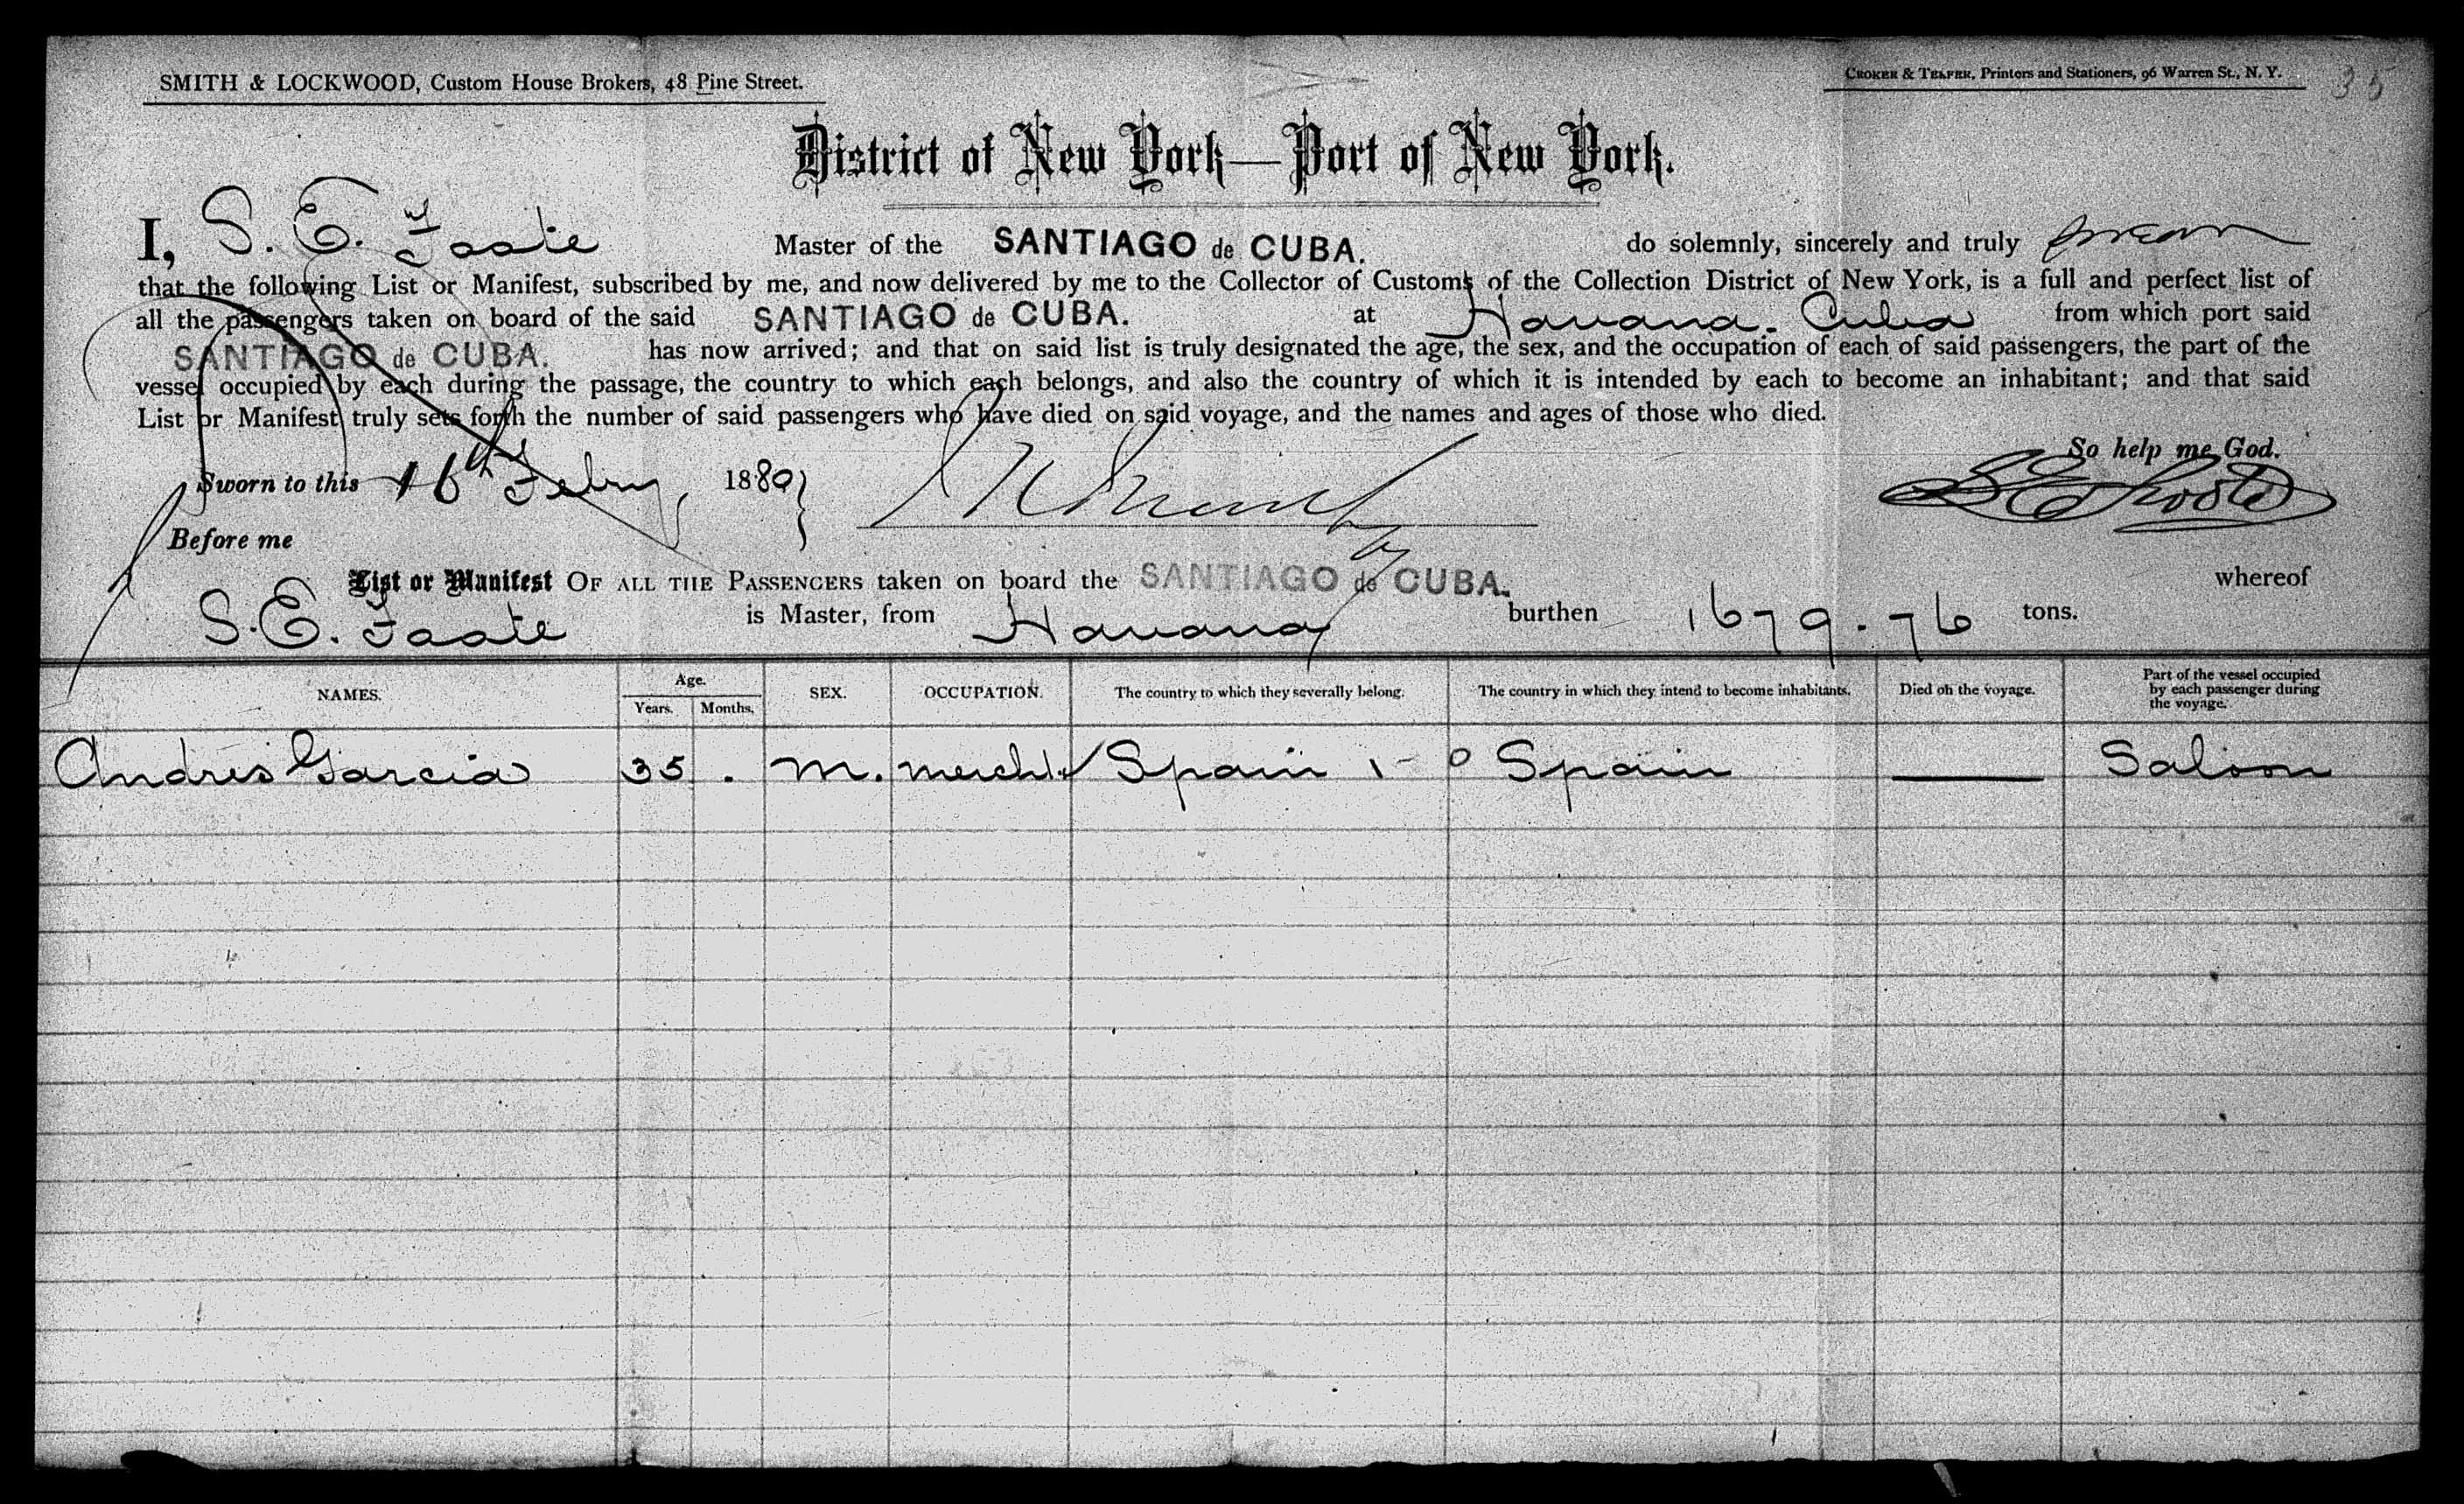 SMITH & LOCKWOOD, Custom House Brokers, 48 Pine Street.
CROKER & TELFER, Printers and Stationers, 96 Warren St., N. Y.
35
District of New York—Port of New York.
I, S. E. Foote Master of the SANTIAGO de CUBA. do solemnly, sincerely and truly swear
that the following List or Manifest, subscribed by me, and now delivered by me to the Collector of Customs of the Collection District of New York, is a full and perfect list of
all the passengers taken on board of the said SANTIAGO de CUBA. at Havana. Cuba from which port said
SANTIAGO de CUBA. has now arrived; and that on said list is truly designated the age, the sex, and the occupation of each of said passengers, the part of the
vessel occupied by each during the passage, the country to which each belongs, and also the country of which it is intended by each to become an inhabitant; and that said
List or Manifest truly sets forth the number of said passengers who have died on said voyage, and the names and ages of those who died.
So help me God.
Sworn to this 16th Febry, 1880
S E Foote
Before me
List or Manifest OF ALL THE PASSENGERS taken on board the SANTIAGO de CUBA. whereof
S. E. Foote is Master, from Havana burthen 1679.76 tons.
NAMES. Age. Years. Months. SEX. OCCUPATION. The country to which they severally belong. The country in which they intend to become inhabitants. Died on the voyage. Part of the vessel occupied by each passenger during the voyage.
Andres Garcia 35 . M. Mercht. Spain 1 - 0 Spain — Saloon